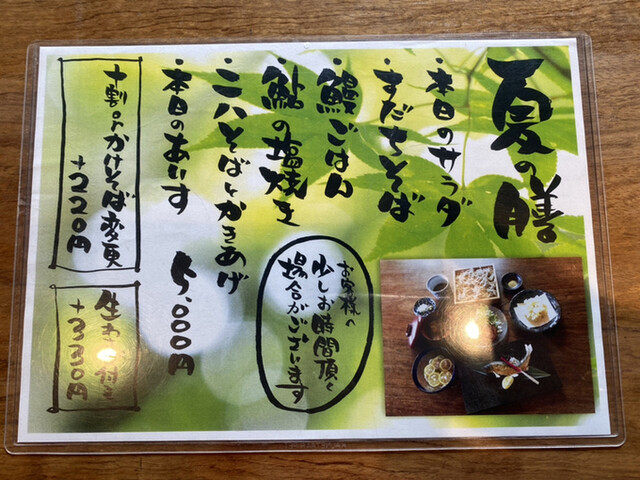 夏の膳
・本日のサラダ
・すだちそば
・鰻ごはん
・鮎の塩焼き
・二八そばとかきあげ
・本日のあいす
5,000円
お客様へ
少しお時間頂く
場合がございます
十割orかけそば変更
+220円
生わさび付き
+330円